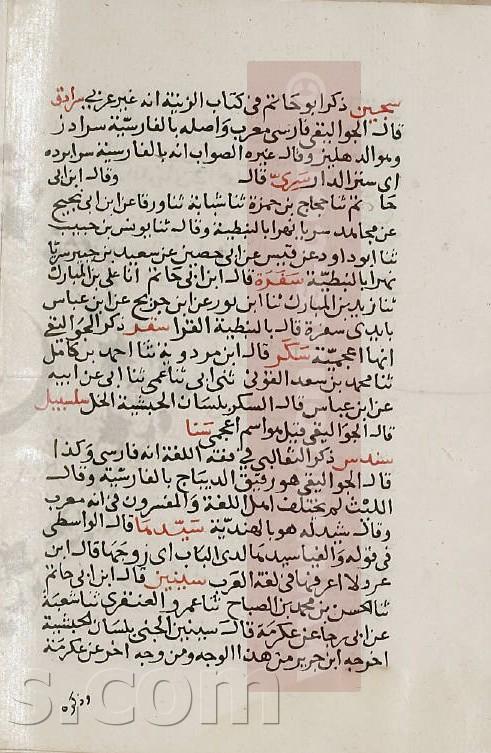 سجين ذكر ابو حاتم فى كتاب الزينة انه غير عربى سرادق
قال الجواليقى فارسى معرب واصله بالفارسية سرادر
وهو الدهليز وقال غيره الصواب انه بالفارسية سرابرده
اى ستر الدار سرى قال وقال ابن ابى
حاتم ثنا حجاج بن حمزة ثنا شبابة ثنا ورقا عن ابن ابى نجيح
عن مجاهد سريا نهرا بالنبطية وقال ثنا يونس بن حبيب
ثنا ابو داود عن قيس عن ابى حصين عن سعيد بن جبير سريا
نهرا بالنبطية سفرة قال ابن ابى حاتم انا على بن المبارك
ثنا زيد بن المبارك ثنا ابن ثور عن ابن جريج عن ابن عباس
بايدى سفرة قال بالنبطية القرا سقر ذكر الجواليقى
انها اعجمية سكر قال ابن مردوية ثنا احمد بن كامل
ثنا محمد بن سعد العوفى ثنى ابى ثنا عمى ثنا ابى عن ابيه
عن ابن عباس قال السكر بلسان الحبشية الخل سلسبيل
قال الجواليقى قيل هو اسم اعجمى سنا
سندس ذكر الثعالبى فى فقه اللغة انه فارسى وكذا
قال الجواليقى هو رقيق الديباج بالفارسية وقال
الليث لم يختلف اهل اللغة والمفسرون فى انه معرب
وقال شيدله هو بالهندية سيدها قال الواسطى
فى قوله والفيا سيدها لدى الباب اى زوجها قال ابو
عمرو لا اعرفها فى لغة العرب سينين قال ابن ابى حاتم
ثنا الحسن بن محمد بن الصباح ثنا عمرو العنقزى ثنا شعبة
عن ابى رجا عن عكرمة قال سينين الحسن بلسان الحبشية
اخرجه ابن جرير من هذا الوجه ومن وجه اخر عن عكرمة
s.com